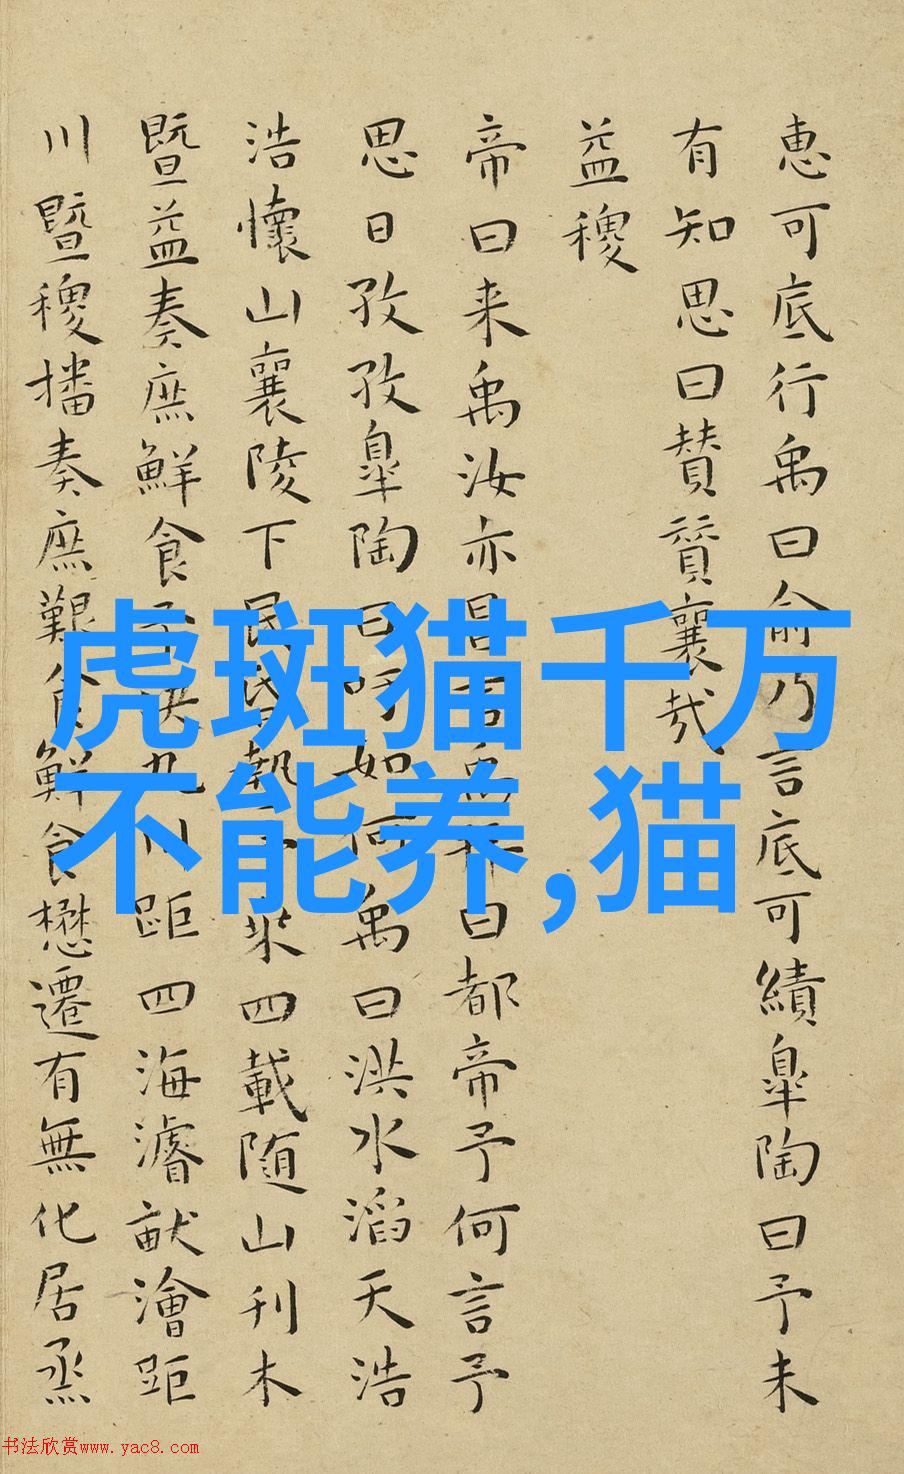 恵可底行禹曰俞乃言底可績皐陶曰予未
有知思曰賛賛襄哉
益稷
帝曰来禹汝亦昌言禹拜曰都帝予何言予
思日孜孜皐陶曰吁如何禹曰洪水滔天浩
浩懷山襄陵下民昏墊予乗四載随山刊木
暨益奏庶鮮食予决九川距四海濬畎澮距
川暨稷播奏庶艱食鮮食懋遷有無化居烝
虎斑猫千万
不能养,猫
书法欣赏www.yac8.com